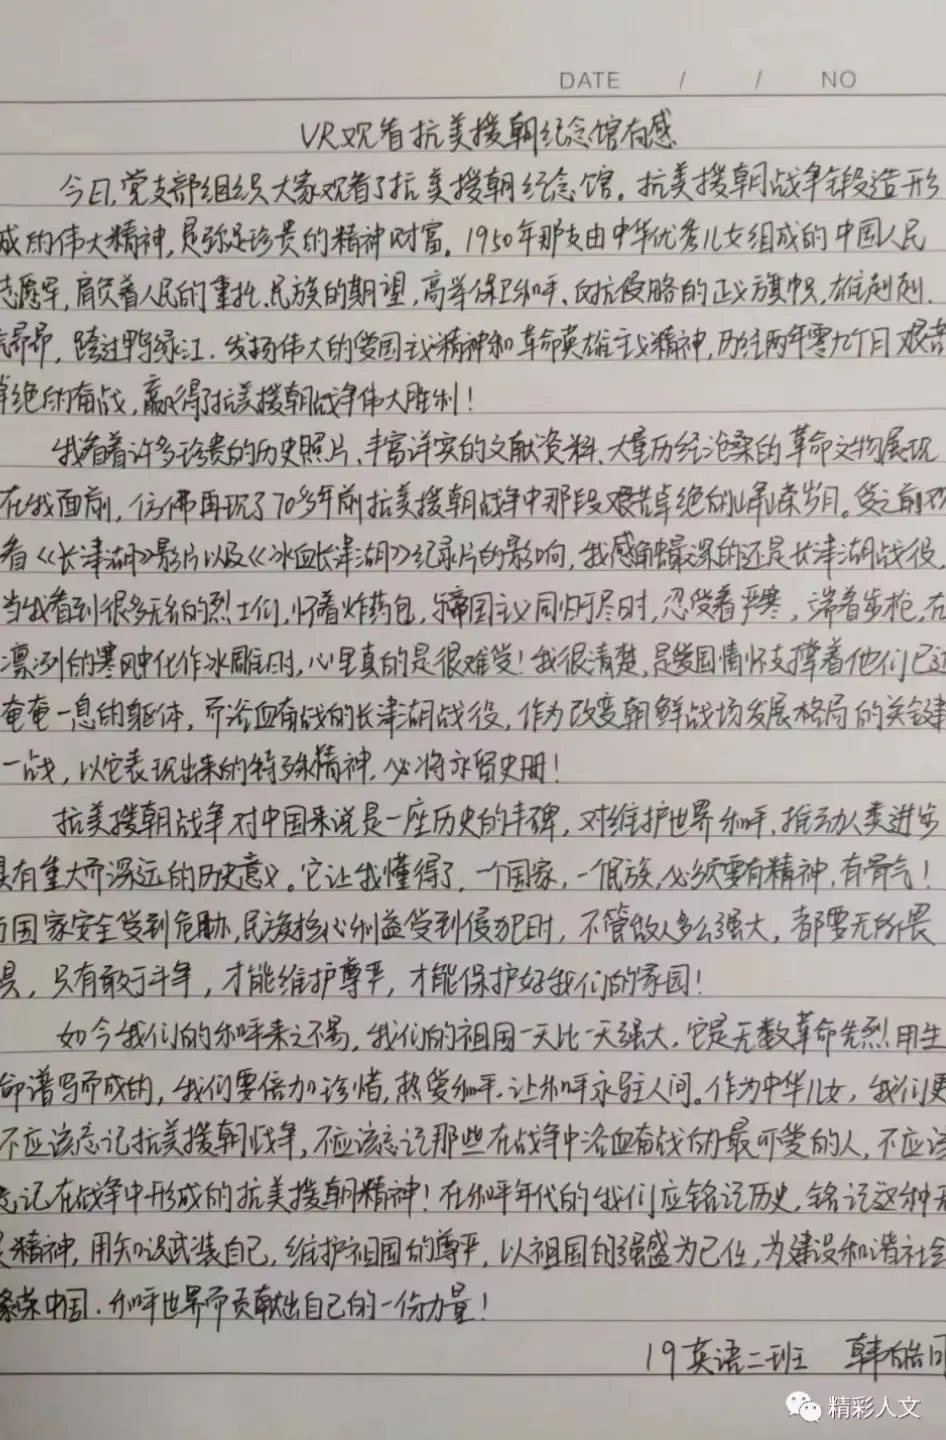 DATE / / NO
VR观看抗美援朝纪念馆有感
今日,党支部组织大家观看了抗美援朝纪念馆。抗美援朝战争锻造形
成的伟大精神,是弥足珍贵的精神财富。1950年那支由中华优秀儿女组成的中国人民
志愿军,肩负着人民的重托、民族的期望,高举保卫和平、反抗侵略的正义旗帜,雄赳赳、
气昂昂,跨过鸭绿江,发扬伟大的爱国主义精神和革命英雄主义精神,历经两年零九个月艰苦
卓绝的奋战,赢得了抗美援朝战争伟大胜利!
我看着许多珍贵的历史照片、丰富详实的文献资料、大量历经沧桑的革命文物展现
在我面前,仿佛再现了70多年前抗美援朝战争中那段艰苦卓绝的峥嵘岁月。受之前观
看《长津湖》影片以及《冰血长津湖》纪录片的影响,我感触最深的还是长津湖战役,
当我看到很多无名的烈士们,怀着炸药包,与帝国主义同归于尽时,忍受着严寒,端着步枪,在
凛冽的寒风中化作冰雕时,心里真的是很难受!我很清楚,是爱国情怀支撑着他们已近
奄奄一息的躯体,而浴血奋战的长津湖战役,作为改变朝鲜战场发展格局的关键
一战,以它表现出来的特殊精神,必将永留史册!
抗美援朝战争对中国来说是一座历史的丰碑,对维护世界和平、推动人类进步
具有重大而深远的历史意义。它让我懂得了,一个国家,一个民族,必须要有精神,有骨气!
当国家安全受到危胁,民族核心利益受到侵犯时,不管敌人多么强大,都要无所畏
惧,只有敢于斗争,才能维护尊严,才能保护好我们的家园!
如今我们的和平来之不易,我们的祖国一天比一天强大,它是无数革命先烈用生
命谱写而成的,我们要倍加珍惜,热爱和平,让和平永驻人间。作为中华儿女,我们更
不应该忘记抗美援朝战争,不应该忘记那些在战争中浴血奋战的最可爱的人,不应该
忘记在战争中形成的抗美援朝精神!在和平年代的我们应铭记历史,铭记这种
精神,用知识武装自己,维护祖国的尊严,以祖国的强盛为己任,为建设和谐社会
繁荣中国、和平世界而贡献出自己的一份力量!
19英语二班 韩皓月
精彩人文